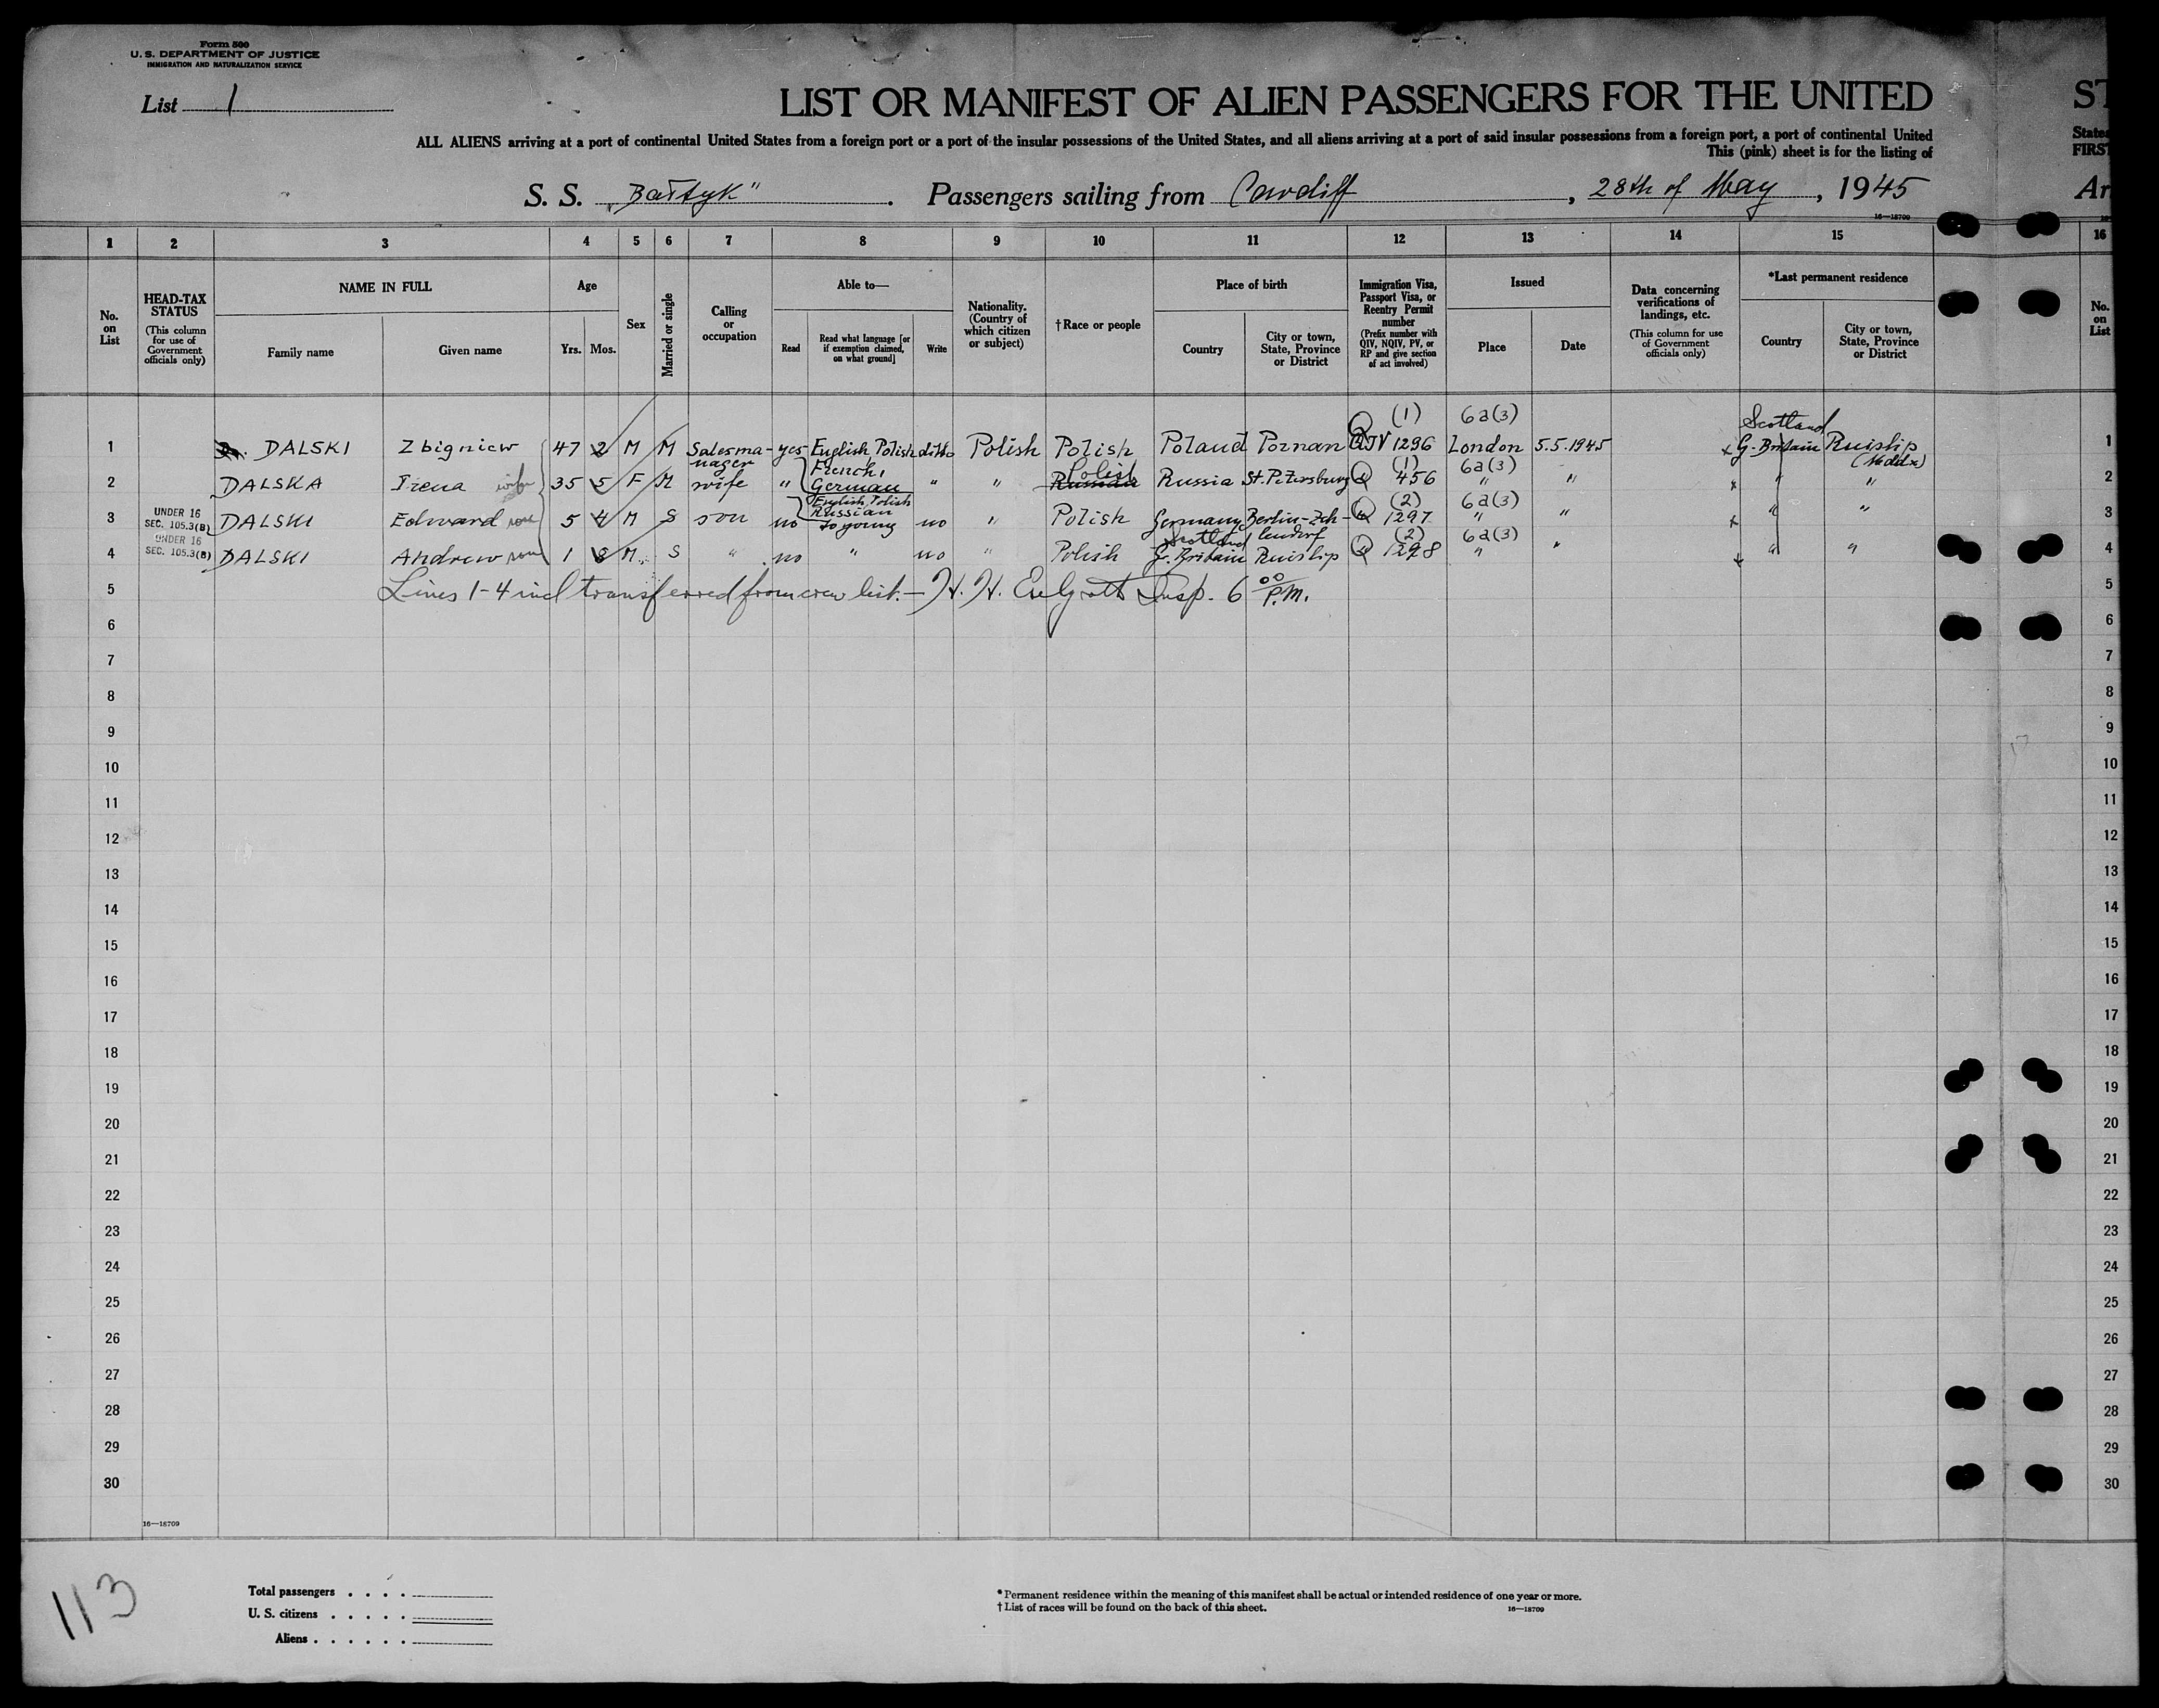 Form 500
U. S. DEPARTMENT OF JUSTICE
IMMIGRATION AND NATURALIZATION SERVICE
List 1
LIST OR MANIFEST OF ALIEN PASSENGERS FOR THE UNITED
ST
ALL ALIENS arriving at a port of continental United States from a foreign port or a port of the insular possessions of the United States, and all aliens arriving at a port of said insular possessions from a foreign port, a port of continental United
States
This (pink) sheet is for the listing of
FIRST
S. S. „Bałtyk". Passengers sailing from Cardiff, 28th of May, 1945
Ar
16—18709
1 2 3 4 5 6 7 8 9 10 11 12 13 14 15 16
No. on List
HEAD-TAX STATUS
(This column for use of Government officials only)
NAME IN FULL
Family name
Given name
Age
Yrs. Mos.
Sex
Married or single
Calling or occupation
Able to—
Read
Read what language [or if exemption claimed, on what ground]
Write
Nationality. (Country of which citizen or subject)
†Race or people
Place of birth
Country
City or town, State, Province or District
Immigration Visa, Passport Visa, or Reentry Permit number
(Prefix number with QIV, NQIV, PV, or RP and give section of act involved)
Issued
Place
Date
Data concerning verifications of landings, etc.
(This column for use of Government officials only)
*Last permanent residence
Country
City or town, State, Province or District
No. on List
(1) 6a(3) Scotland
1 DALSKI Zbigniew 47 2 M M Salesmanager yes English, Polish ditto Polish Polish Poland Poznan QIV 1296 London 5.5.1945 G. Britain Ruislip (Middx) 1
French, Polish (1) 6a(3)
2 DALSKA Irena wife 35 5 F M wife " German " " Russian Russia St. Petersburg Q 456 " " " " 2
English, Polish Russian (2) 6a(3)
3 UNDER 16 SEC. 105.3(B) DALSKI Edward son 5 4 M S son no to young no " Polish Germany Berlin-Zehlendorf Q 1297 " " " " 3
Scotland (2) 6a(3)
4 UNDER 16 SEC. 105.3(B) DALSKI Andrew son 1 8 M. S " no " no " Polish G. Britain Ruislip Q 1298 " " " " 4
5 Lines 1-4 incl transferred from crew list.— H. H. Insp. 6 00 P.M. 5
6 6
7 7
8 8
9 9
10 10
11 11
12 12
13 13
14 14
15 15
16 16
17 17
18 18
19 19
20 20
21 21
22 22
23 23
24 24
25 25
26 26
27 27
28 28
29 29
30 30
16—18709
113
Total passengers . . . .
U. S. citizens . . . . .
Aliens . . . . . .
* Permanent residence within the meaning of this manifest shall be actual or intended residence of one year or more.
† List of races will be found on the back of this sheet.
16—18709